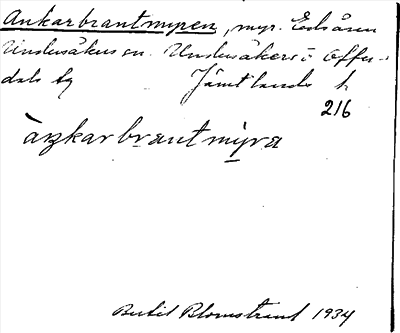 Ankarbrantmyren, myr. Edsåsen
Undersåkers sn. Undersåkers o. Offer-
dals tg Jämtlands l.
216
àŋkarbrantmỳra
Bertil Blomstrand 1934